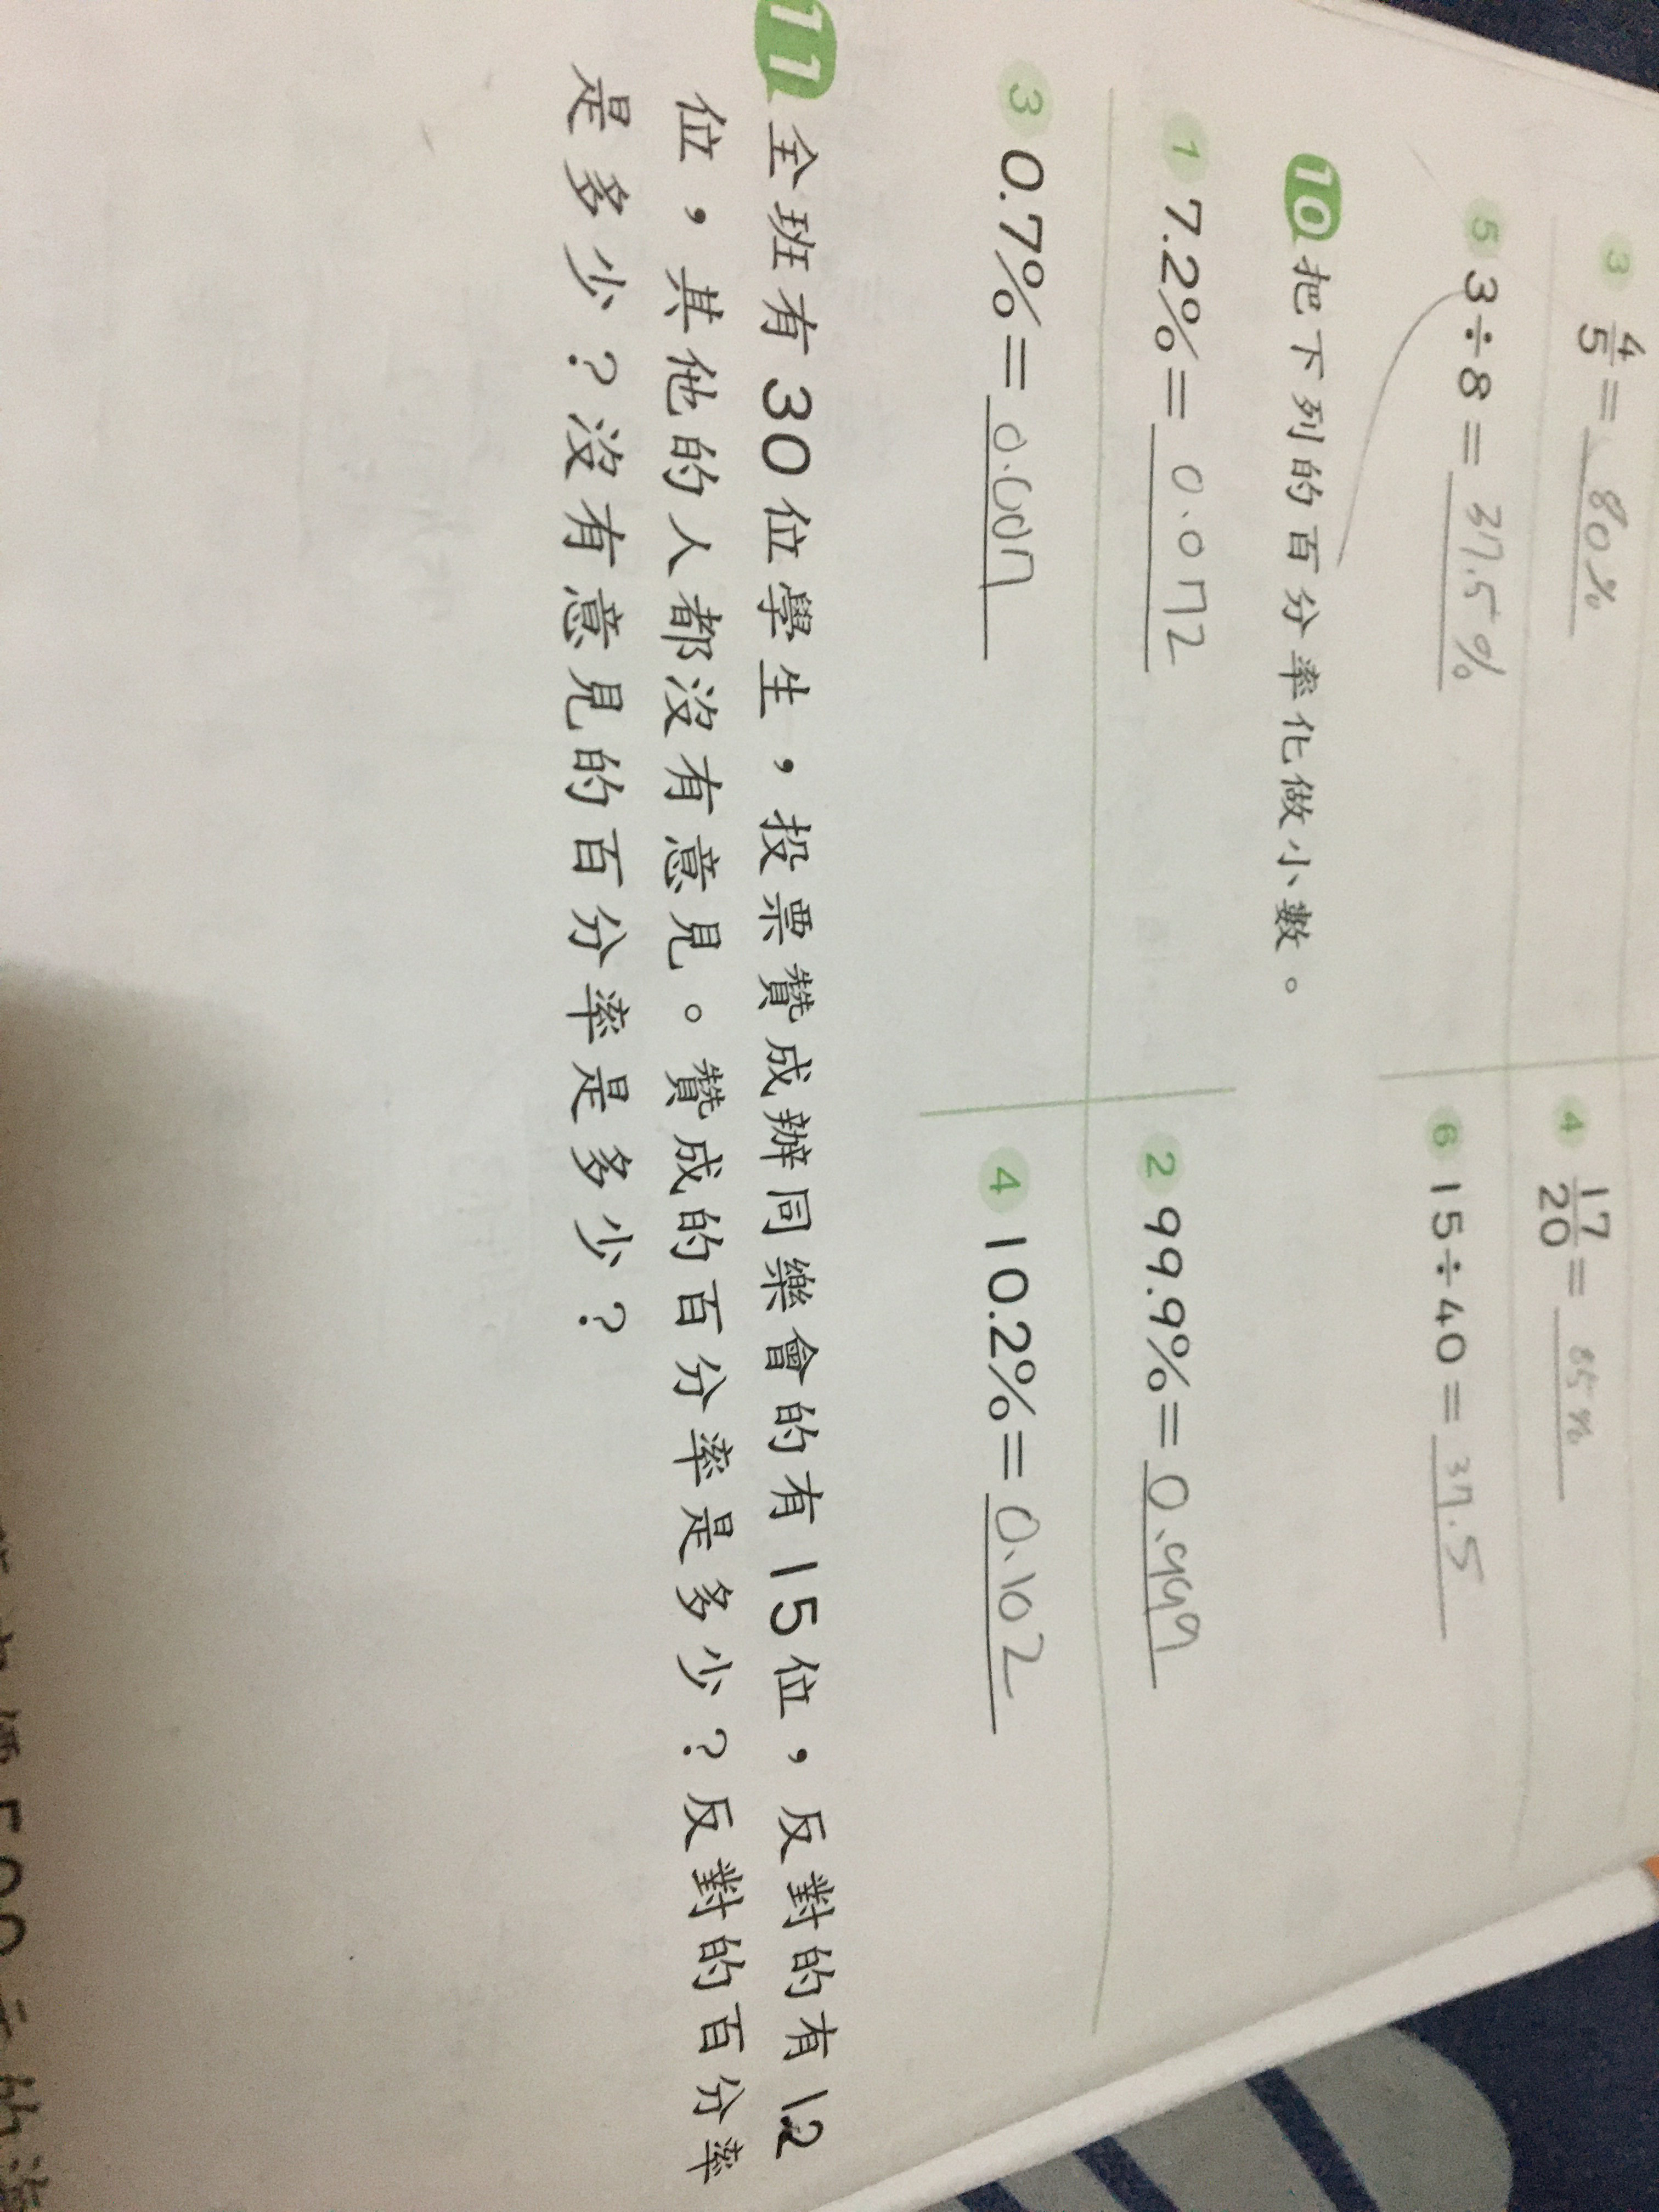 3 4/5 = 80%
4 17/20 = 85%
5 3÷8 = 37.5%
6 15÷40 = 37.5
10 把下列的百分率化做小數。
1 7.2% = 0.072
2 99.9% = 0.999
3 0.7% = 0.007
4 10.2% = 0.102
11 全班有30位學生，投票贊成辦同樂會的有15位，反對的有12
位，其他的人都沒有意見。贊成的百分率是多少？反對的百分率
是多少？沒有意見的百分率是多少？